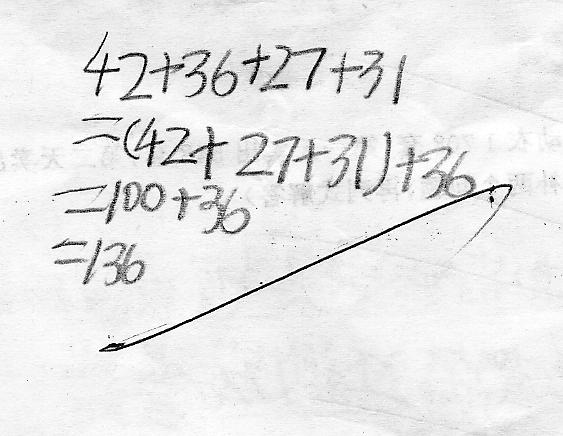 42+36+27+31
=(42+27+31)+36
=100+36
=136